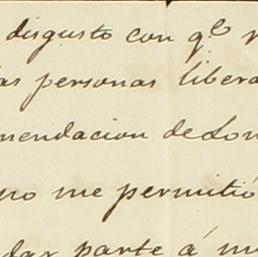 disgusto con qᵉ
las personas libera
mendacion de Lon
no me permitió
dar parte á